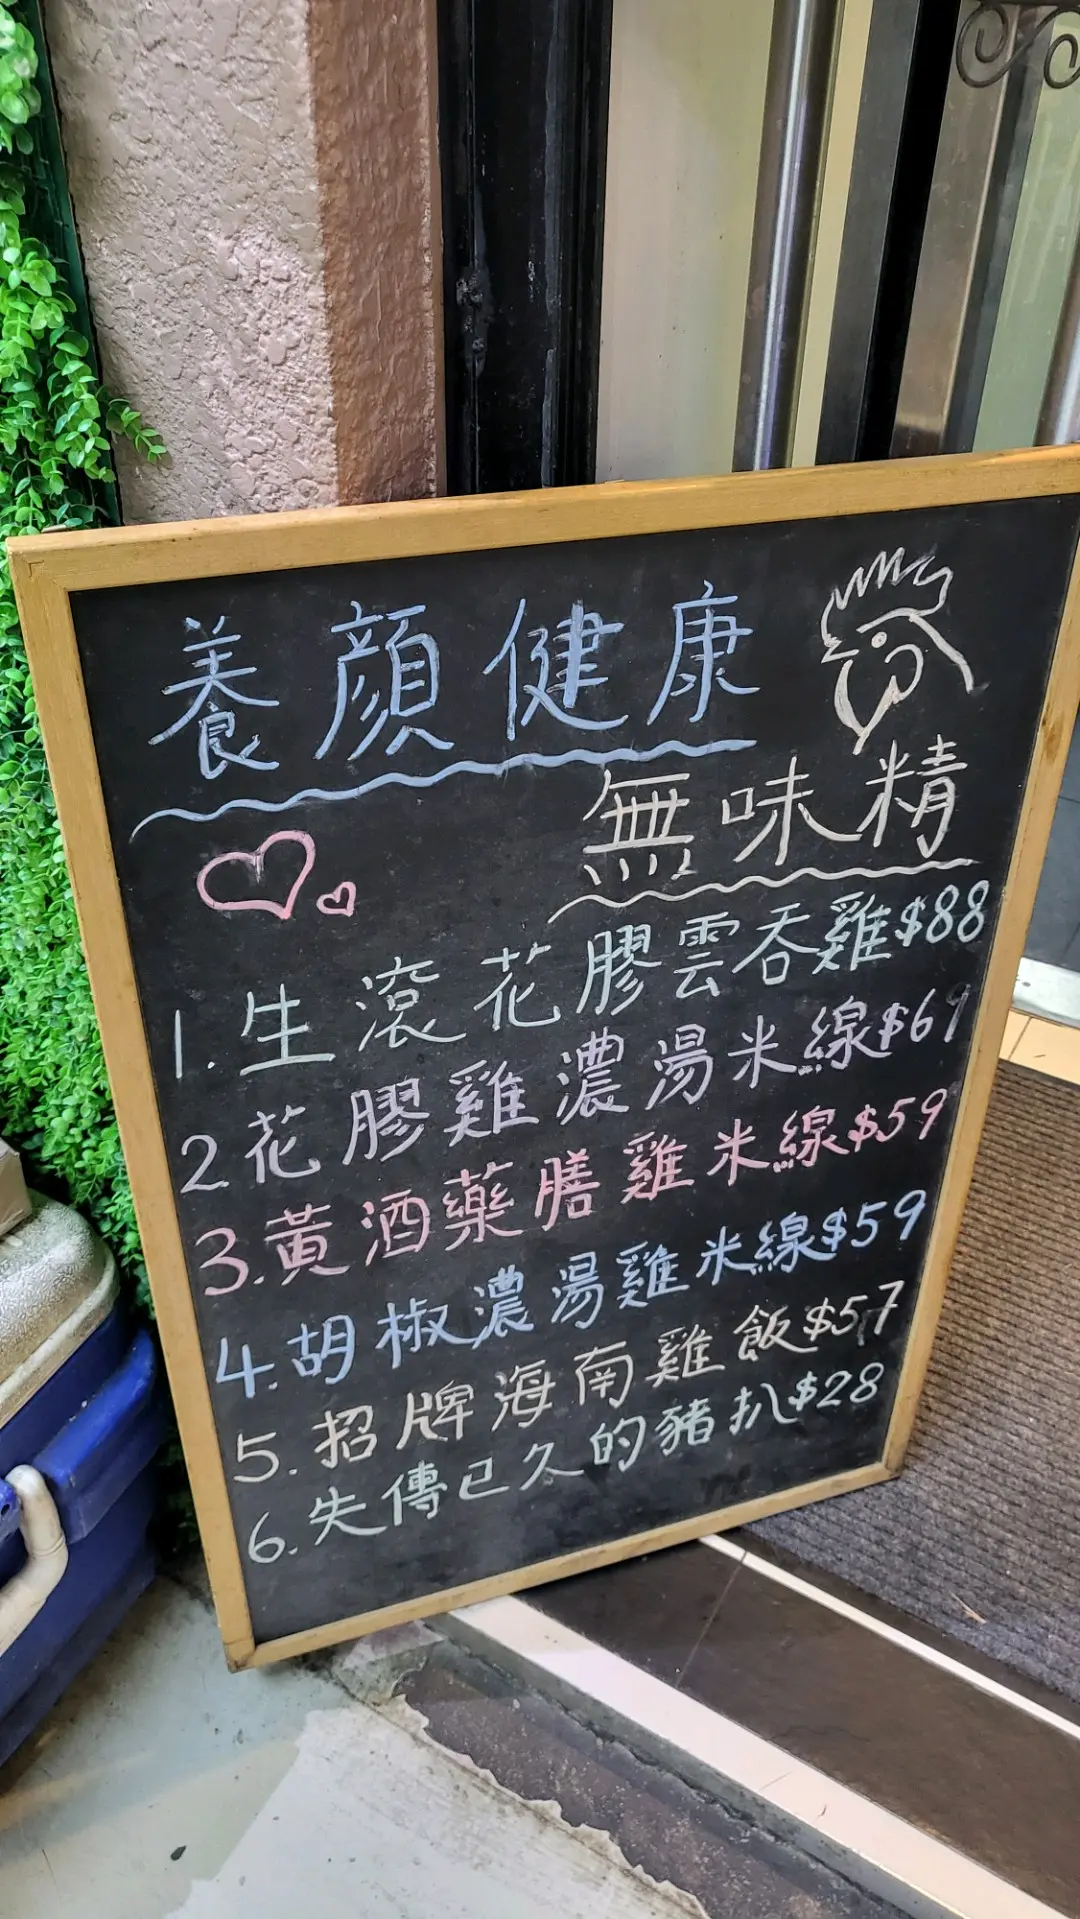 養顔健康
無味精
1.生滾花膠雲吞雞$88
2花膠雞濃湯米線$69
3.黃酒藥膳雞米線$59
4.胡椒濃湯雞米線$59
5.招牌海南雞飯$57
6.失傳已久的豬扒$28